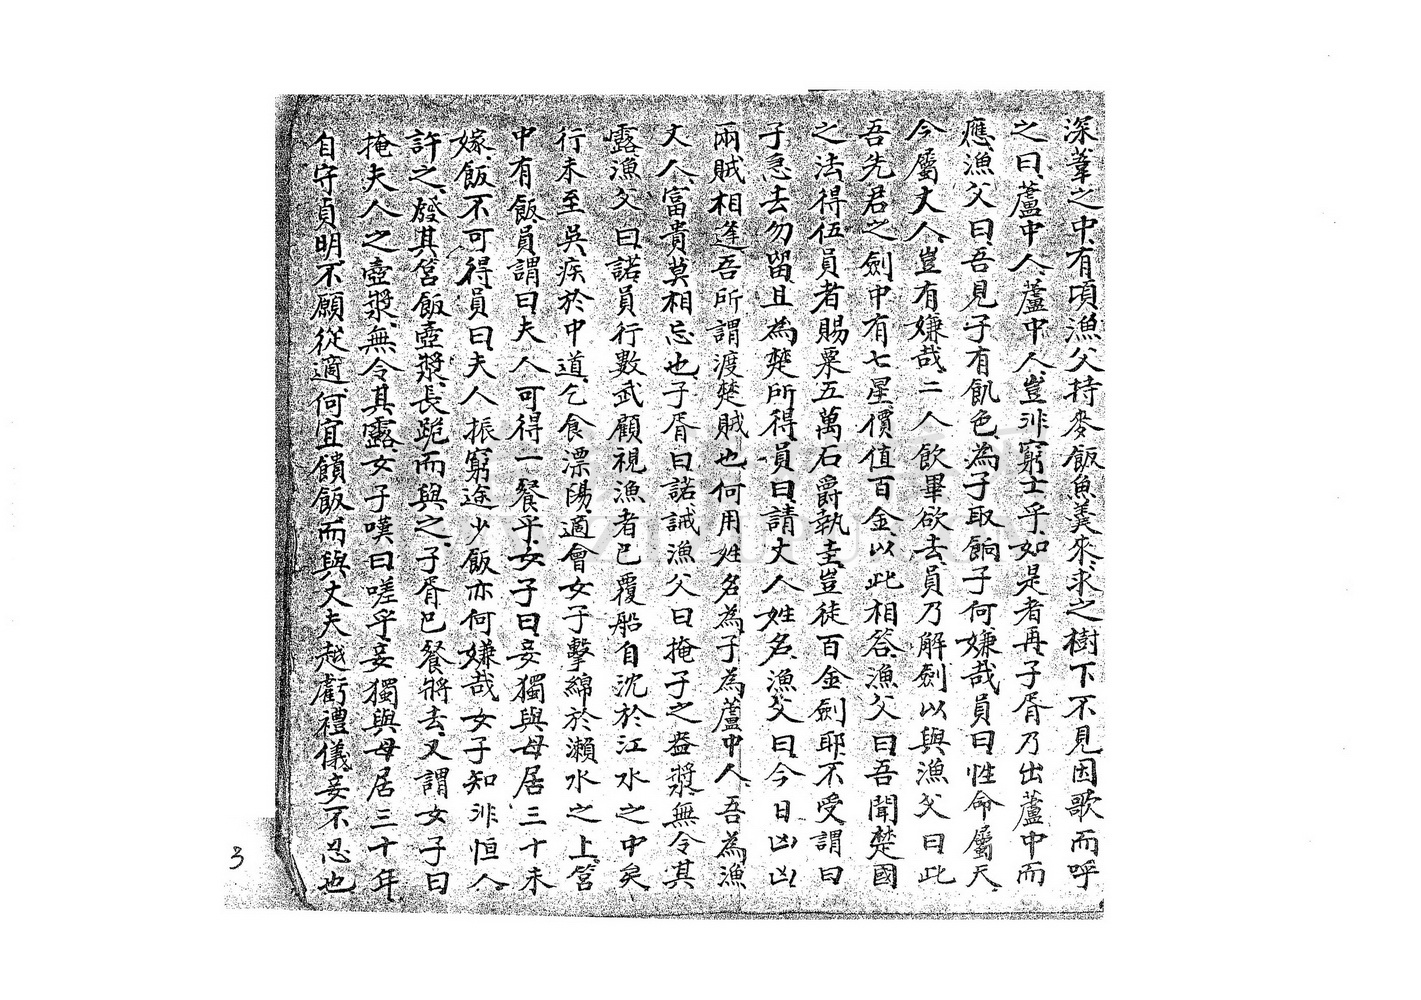 深葦之中有頃漁父持麥飯魚羹來求之樹下不見因歌而呼
之曰蘆中人蘆中人豈非窮士乎如是者再子胥乃出蘆中而
應漁父曰吾見子有飢色為子取餉子何嫌哉員曰性命屬天
今屬丈人豈有嫌哉二人飲畢欲去員乃解劍以與漁父曰此
吾先君之劍中有七星價值百金以此相答漁父曰吾聞楚國
之法得伍員者賜粟五萬石爵執圭豈徒百金劍耶不受謂曰
子急去勿留且為楚所得員曰請丈人姓名漁父曰今日凶凶
兩賊相逢吾所謂渡楚賊也何用姓名為子為蘆中人吾為漁
丈人富貴莫相忘也子胥曰諾誡漁父曰掩子之盎漿無令其
露漁父曰諾員行數武顧視漁者已覆船自沈於江水之中矣
行未至吳疾於中道乞食漂陽適會女子擊綿於瀨水之上筥
中有飯員謂曰夫人可得一餐乎女子曰妾獨與母居三十未
嫁飯不可得員曰夫人振窮途少飯亦何嫌哉女子知非恒人
許之發其筥飯壺漿長跪而與之子胥已餐將去又謂女子曰
掩夫人之壺漿無令其露女子嘆曰嗟乎妾獨與母居三十年
自守貞明不願從適何宜饋飯而與丈夫越虧禮儀妾不忍也
3